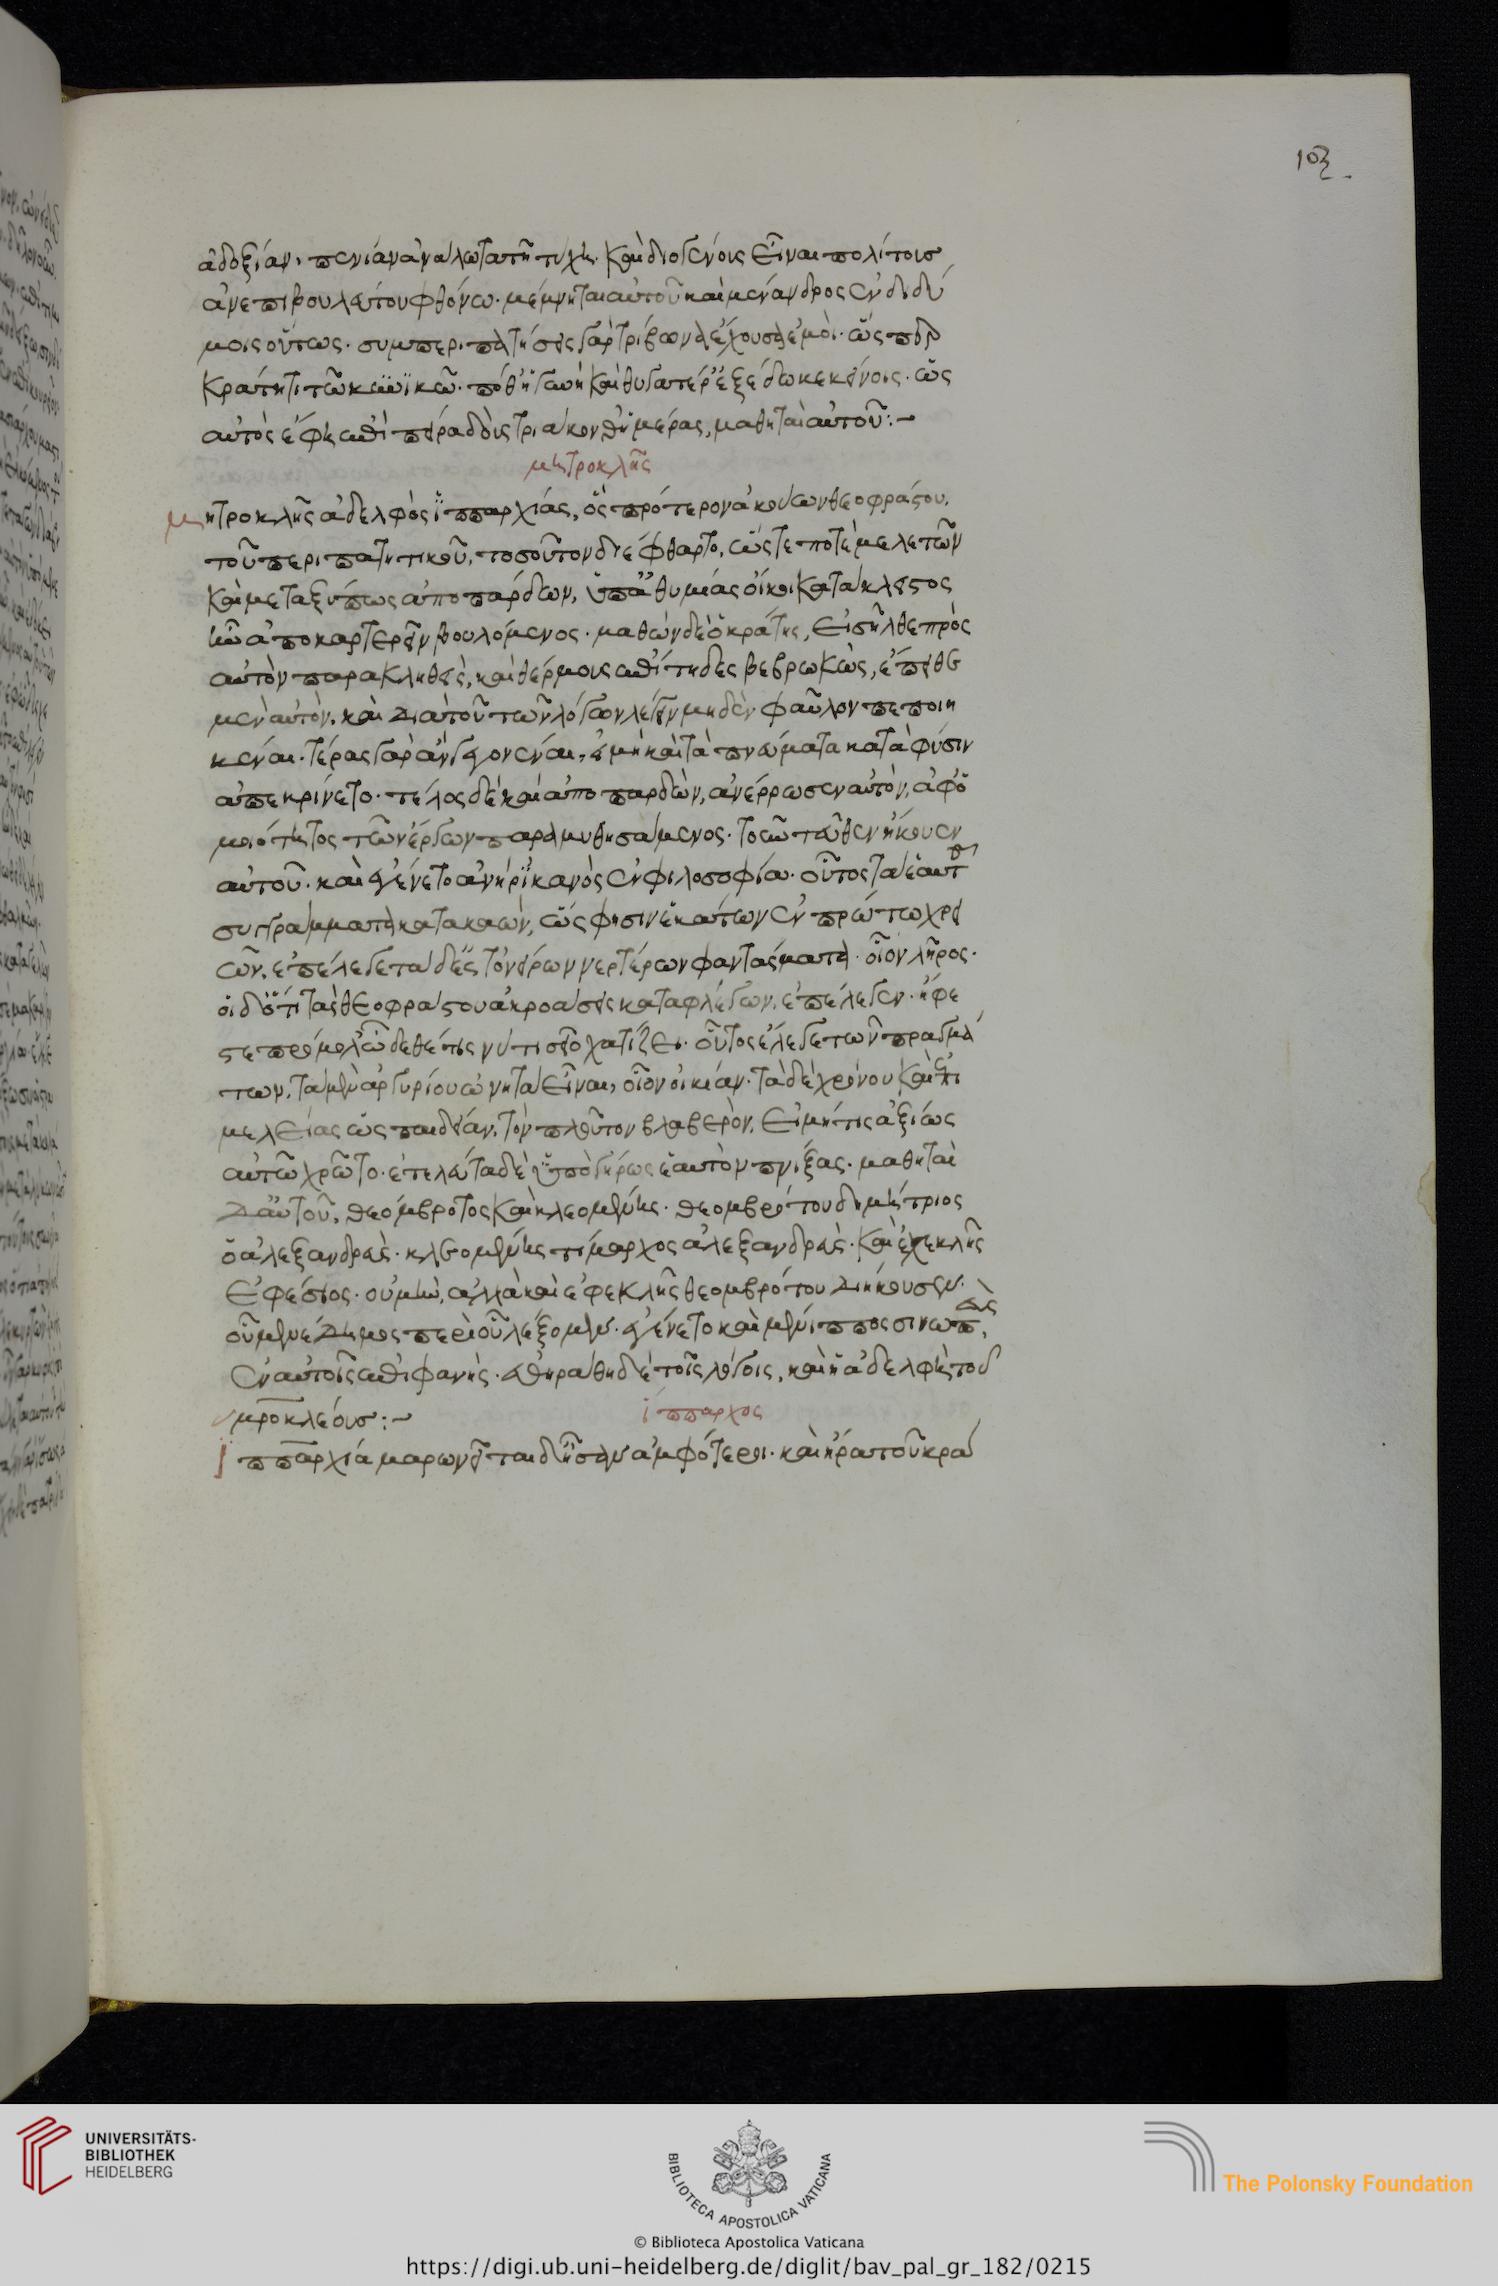 103
ἀδοξίαν, πενίαν ἀναλωτα τῆ τύχη. καὶ διογένοις εἶναι πολίτοισ
ἀνεπιβουλεύτου φθόνω. μέμνηται αὐτοῦ καὶ μένανδρος ἐν διδύ
μοις οὕτως. συμπεριπατήσεις γὰρ τρίβων' ἔχουσα ἐμοὶ. ὥσπερ
κράτητι τῶ κϋνϊκῶ. ποθ' ἡ γυνὴ καὶ θυγατέρ' ἐξέδωκ' ἐκείνοις. ὡς
αὐτὸς ἔφη ἐπὶ πείρα δοὺς τριάκονθ' ἡμέρας, μαθηταὶ αὐτοῦ:~
μητροκλῆς
μητροκλῆς ἀδελφὸς ἱππαρχίας, ὃς πρότερον ἀκούων θεοφράστου,
τοῦ περιπατητικοῦ, τοσοῦτον διέφθαρτο, ὥστε ποτὲ μελετῶν
καὶ μεταξύ πως ἀποπαρδῶν, ὑπ' ἀθυμίας οἴκοι κατάκλειστος
ἦν ἀποκαρτερεῖν βουλόμενος. μαθὼν δὲ ὁ κράτης, εἰσῆλθε πρὸς
αὐτὸν παρακληθεὶς, καὶ θέρμους ἐπίτηδες βεβρωκὼς, ἔπειθε
μὲν αὐτὸν, καὶ διὰ τοῦ τῶν λόγων λέγειν μηδὲν φαῦλον πεποιη
κέναι. τέρας γὰρ ἂν γεγονέναι, εἰ μὴ καὶ τὰ πνεύματα κατὰ φύσιν
ἀπεκρίνετο. τέλος δὲ καὶ ἀποπαρδὼν, ἀνέρρωσεν αὐτὸν, ἀφ' ὁ
μοιότητος τῶν ἔργων παραμυθησάμενος. τοὐντεῦθεν ἤκουεν
αὐτοῦ. καὶ ἐγένετο ἀνὴρ ἱκανὸς ἐν φιλοσοφία. οὗτος τὰ ἑαυτοῦ
συγγράμματα κατακαίων, ὥς φησιν ἑκάτων ἐν πρώτω χρει
ῶν, ἐπέλεγε τάδ' ἔστ' ὀνείρων νερτέρων φαντάσματα. οἷον λῆρος.
οἱ δ' ὅτι τὰς θεοφράστου ἀκροάσεις καταφλέγων, ἐπέλεγεν. ἥφε
στε πρόμολ' ὧδε θέτις νύ τι σεῖο χατίζει. οὗτος ἔλεγε τῶν πραγμά
των, τὰ μὲν ἀργυρίου ὠνητὰ εἶναι, οἷον οἰκίαν. τὰ δὲ χρόνου καὶ ἐπι
μελείας ὡς παιδείαν, τὸν πλοῦτον βλαβερὸν, εἰ μή τις ἀξίως
αὐτῶ χρῶτο. ἐτελεύτα δὲ ὑπὸ γήρως ἑαυτὸν πνίξας. μαθηταὶ
δ' αὐτοῦ, θεόμβροτος καὶ κλεομένης. θεομβρότου δημήτριος
ὁ ἀλεξανδρεὺς. κλεομένης τίμαρχος ἀλεξανδρεὺς. καὶ ἐχεκλῆς
ἐφέσιος. οὐ μὴν, ἀλλὰ καὶ ἐφεκλῆς θεομβρότου διήκουσεν.
οὗ μενέδημος περὶ οὗ λέξομεν. ἐγένετο καὶ μένιππος σινωπεὺς,
ἐν αὐτοῖς ἐπιφανὴς. ἐθηράθη δὲ τοῖς λόγοις, καὶ ἡ ἀδελφὴ τοῦ
μητροκλέουσ:~
ἵππαρχος
ἱππαρχία μαρωνεῖται δ' ἦσαν ἀμφότεροι. καὶ ἤρα τοῦ κρά
UNIVERSITÄTS-
BIBLIOTHEK
HEIDELBERG
BIBLIOTECA APOSTOLICA VATICANA
© Biblioteca Apostolica Vaticana
The Polonsky Foundation
https://digi.ub.uni-heidelberg.de/diglit/bav_pal_gr_182/0215